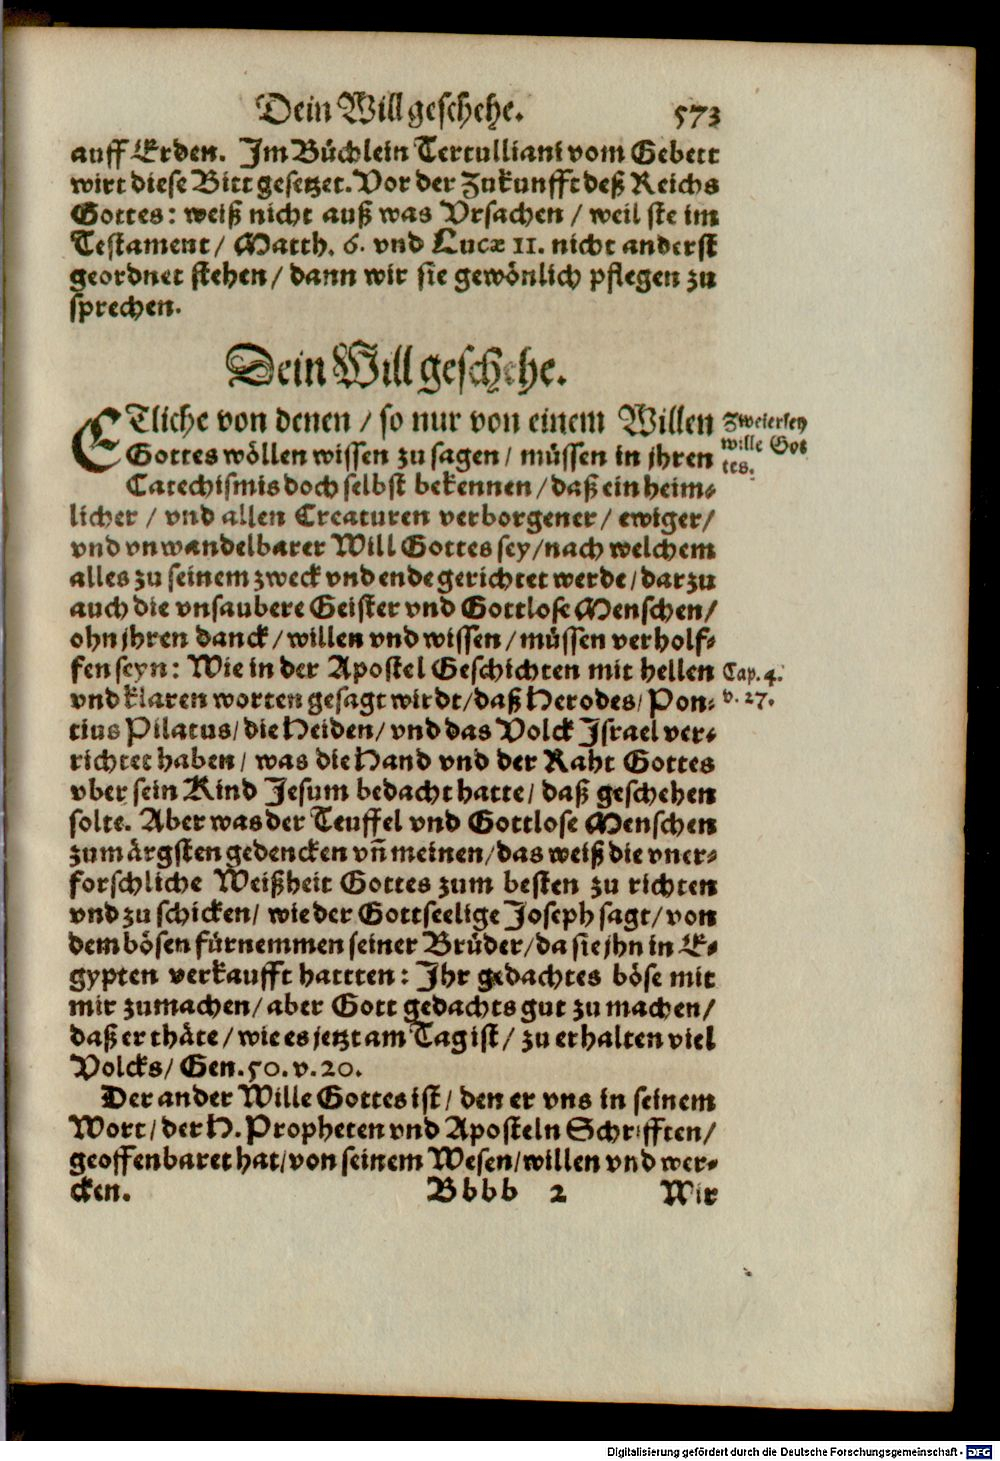 Dein Will geschehe. 573
auff Erden. Im Büchlein Tertulliani vom Gebett
wirt diese Bitt gesetzet. Vor der Zukunfft deß Reichs
Gottes: weiß nicht auß was Vrsachen / weil sie im
Testament / Matth. 6. vnd Lucæ 11. nicht anderst
geordnet stehen / dann wir sie gewönlich pflegen zu
sprechen.
Dein Will geschehe.
ETliche von denen / so nur von einem Willen
Zweierley
Gottes wöllen wissen zu sagen / müssen in jhren
wille Got
tes.
Catechismis doch selbst bekennen / daß ein heim-
licher / vnd allen Creaturen verborgener / ewiger /
vnd vnwandelbarer Will Gottes sey / nach welchem
alles zu seinem zweck vnd ende gerichtet werde / darzu
auch die vnsaubere Geister vnd Gottlose Menschen /
ohn jhren danck / willen vnd wissen / müssen verholf-
fen seyn: Wie in der Apostel Geschichten mit hellen
Cap. 4.
vnd klaren worten gesagt wirdt / daß Herodes / Pon-
v. 27.
tius Pilatus / die Heiden / vnd das Volck Israel ver-
richtet haben / was die Hand vnd der Raht Gottes
vber sein Kind Jesum bedacht hatte / daß geschehen
solte. Aber was der Teuffel vnd Gottlose Menschen
zum ärgsten gedencken vñ meinen / das weiß die vner-
forschliche Weißheit Gottes zum besten zu richten
vnd zu schicken / wie der Gottseelige Joseph sagt / von
dem bösen fürnemmen seiner Brüder / da sie jhn in E-
gypten verkaufft hattten: Ihr gedachtes böse mit
mir zumachen / aber Gott gedachts gut zu machen /
daß er thäte / wie es jetzt am Tag ist / zu erhalten viel
Volcks / Gen. 50. v. 20.
Der ander Wille Gottes ist / den er vns in seinem
Wort / der H. Propheten vnd Aposteln Schrifften /
geoffenbaret hat / von seinem Wesen / willen vnd wer-
cken. Bbbb 2 Wir
Digitalisierung gefördert durch die Deutsche Forschungsgemeinschaft - DFG